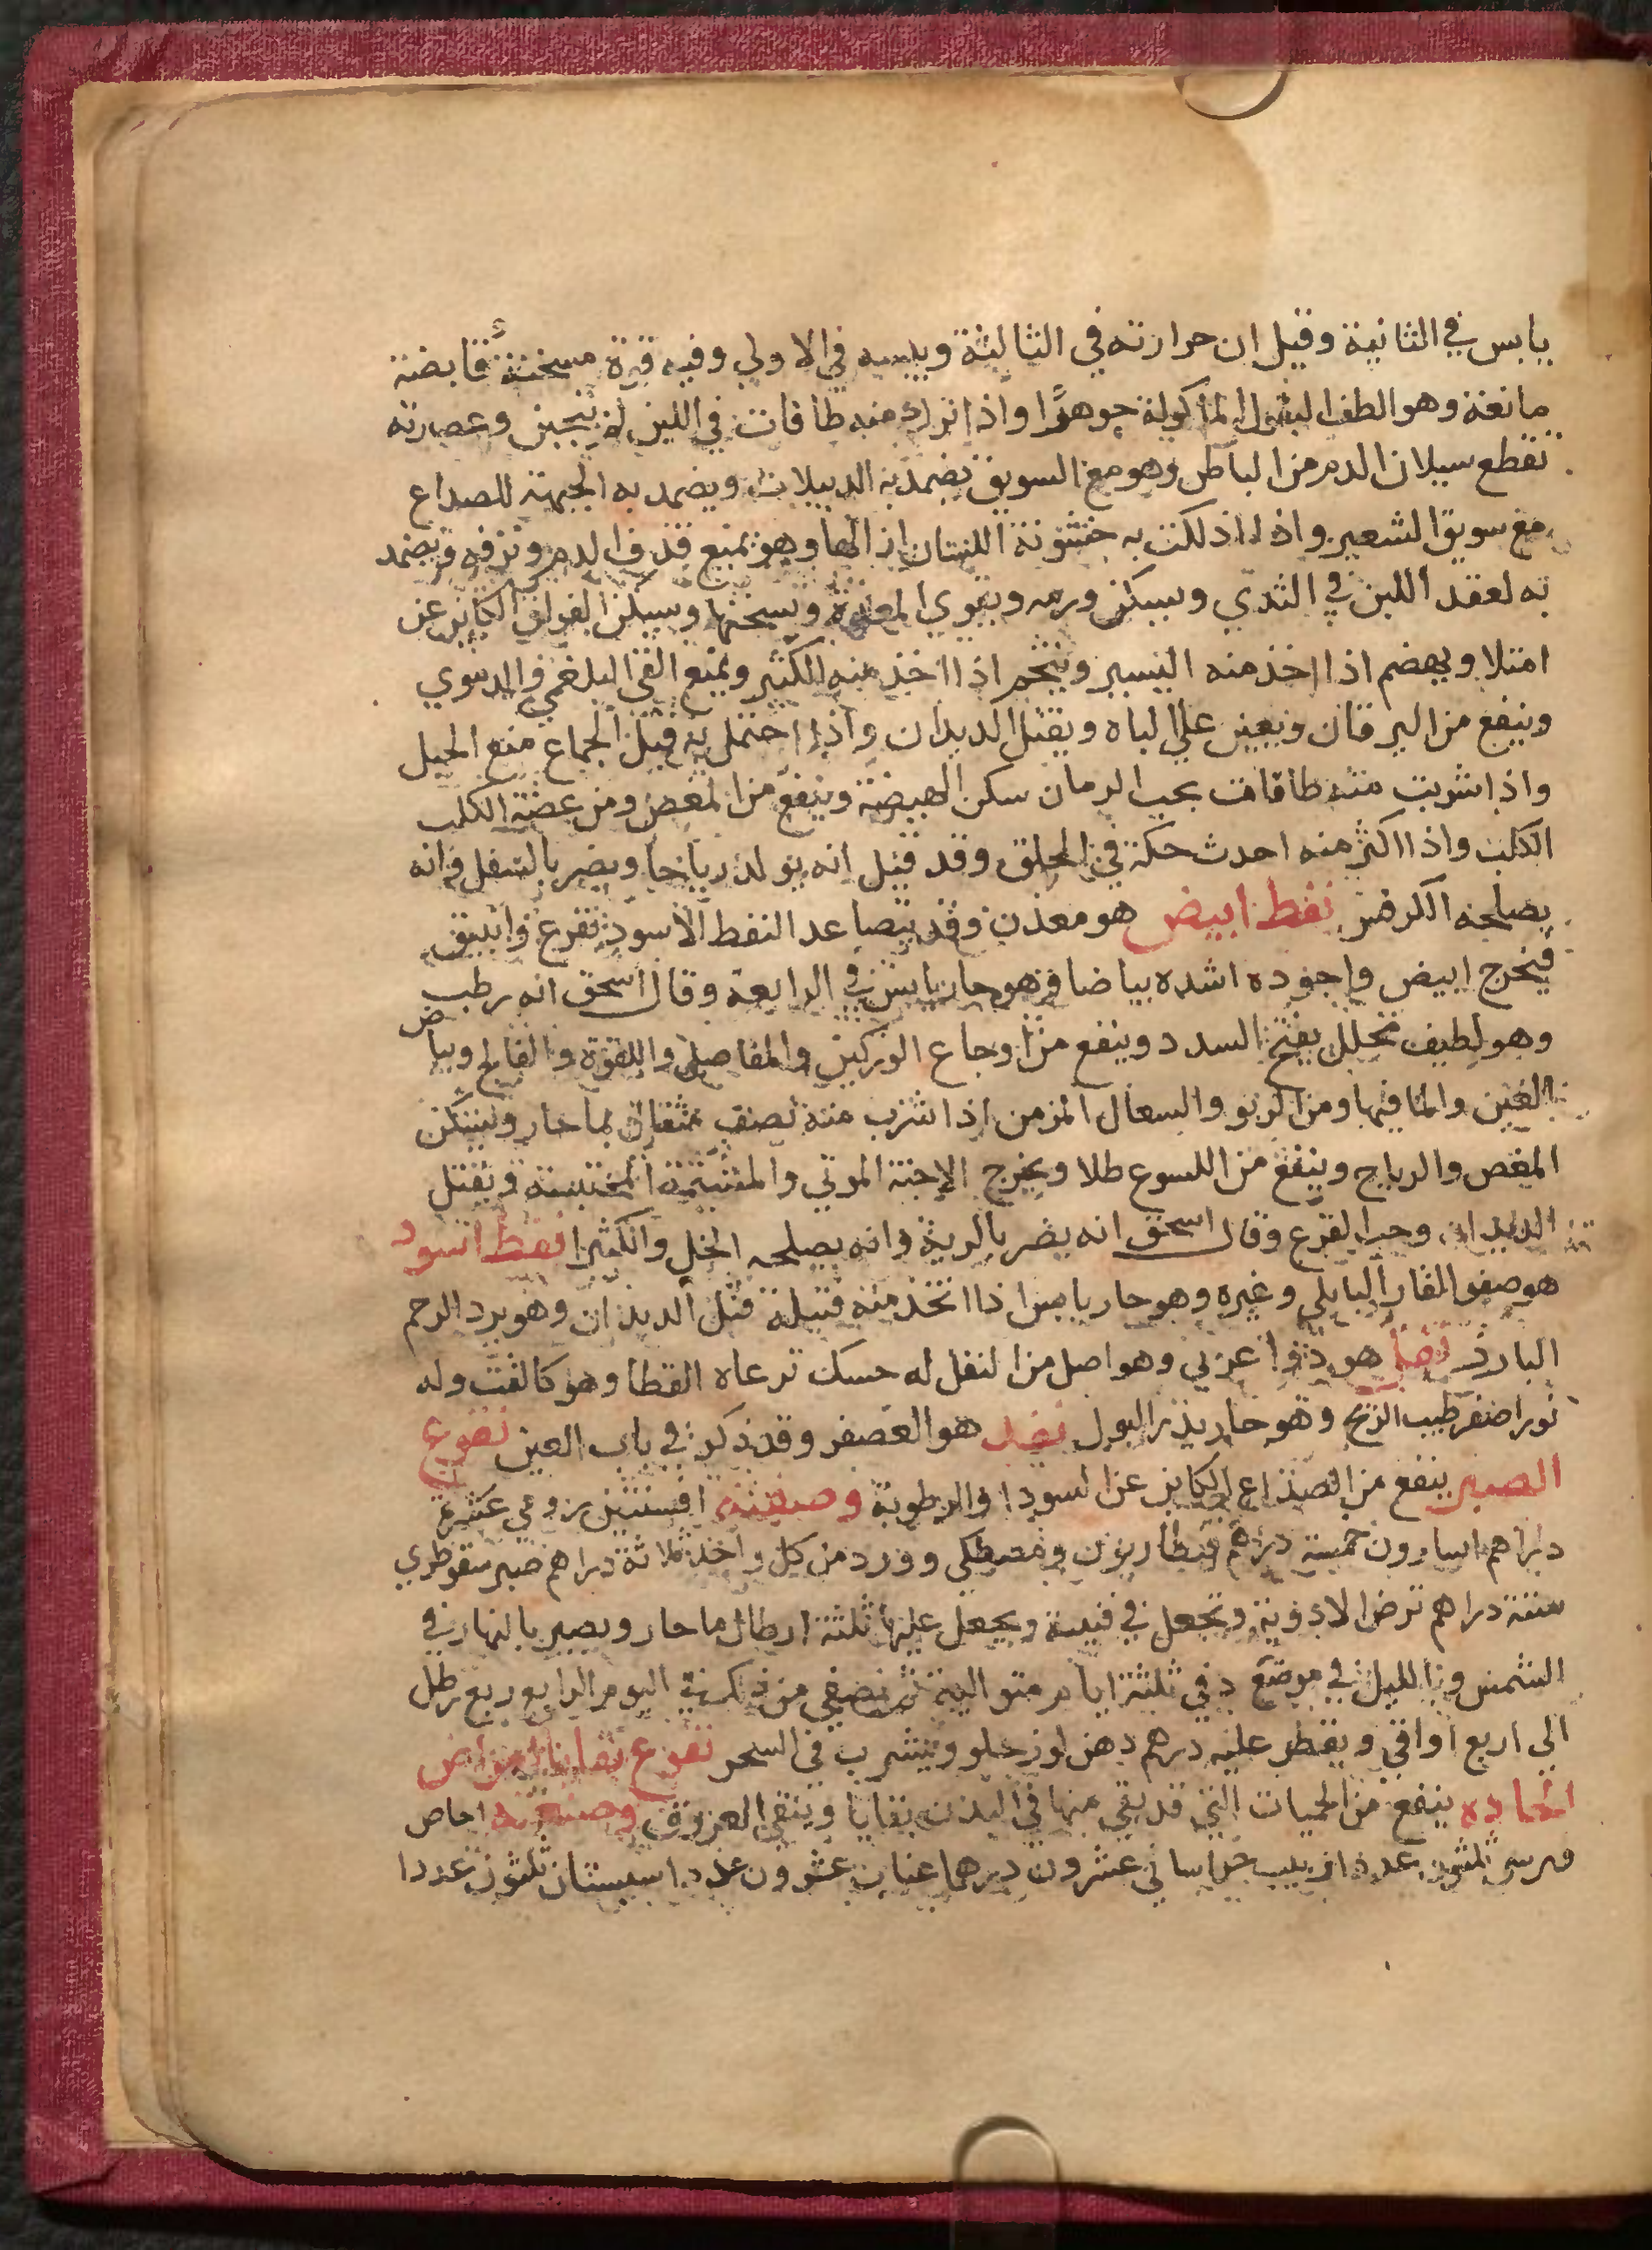 يابس في الثانية وقيل ان حرارته في الثالثة ويبسه في الاولي وفيه قوة مسخنة قابضة
مانعة وهو الطف البقول الماكولة جوهرا واذا ترك منه طاقات في اللبن لم يتجبن وعصارته
تقطع سيلان الدم من الباطن وهو مع السويق تضمد به الدبيلات ويضمد به الجبهة للصداع
مع سويق الشعير واذا دلكت به خشونة اللسان ازالها وهو يمنع قذف الدم ونزفه ويضمد
به لعقد اللبن في الثدي ويسكن ورمه ويقوي المعدة ويسخنها ويسكن الفواق الكاين عن
امتلا ويهضم اذا اخذ منه اليسير ويتخم اذا اخذ منه الكثير ويمنع القي البلغمي والدموي
وينفع من اليرقان ويعين علي الباه ويقتل الديدان واذا احتمل به قبل الجماع منع الحبل
واذا شربت منه طاقات بحب الرمان سكن الهيضة وينفع من المغص ومن عضة الكلب
الكلب واذا اكثر منه احدث حكة في الحلق وقد قيل انه يولد رياحا ويضر بالسفل وانه
يصلحه الكرفس نفط ابيض هو معدن وقد يتصاعد النفط الاسود بقرع وانبيق
فيخرج ابيض واجوده اشده بياضا وهو حار يابس في الرابعة وقال اسحق انه رطب
وهو لطيف محلل يفتح السدد وينفع من اوجاع الوركين والمفاصل واللقوة والفالج وبياض
العين والما فيها ومن الربو والسعال المزمن اذا شرب منه نصف مثقال بما حار ويسكن
المغص والرياح وينفع من اللسوع طلا ويخرج الاجنة الموتي والمشيمة المحتبسة ويقتل
الديدان وحب القرع وقال اسحق انه يضر بالرية وانه يصلحه الخل والكثيرا نفط اسود
هو صفو القار البابلي وغيره وهو حار يابس اذا اتخذ منه فتيلة قتل الديدان وهو برد الرحم
البارد هو دوا عربي وهو اصل من النفل له حسك ترعاه القطا وهو كالقت وله
نور اصفر طيب الريح وهو حار يدر البول هو العصفر وقد ذكر في باب العين نقوع
الصبر ينفع من الصداع الكاين عن السودا والرطوبة وصفته افسنتين رومي عشرة
دراهم اسارون خمسة دراهم قنطاريون ومصطكي وورد من كل واحد ثلاثة دراهم صبر سقوطري
ستة دراهم ترض الادوية وتجعل في قنينة ويجعل عليها ثلثة ارطال ما حار ويصير بالنهار في
الشمس وبالليل في موضع دفي ثلثة ايام متوالية ثم تصفي من بكرة اليوم الرابع ربع رطل
الي اربع اواقي ويقطر عليه درهم دهن لوز حلو ويشرب في السحر نقوع بقايا الامراض
الحاده ينفع من الحميات التي قد بقي منها في البدن بقايا وينقي العروق وصفته اجاص
ثلثون عددا زبيب خراساني عشرون درهما عناب عشرون عددا سبستان ثلثون عددا